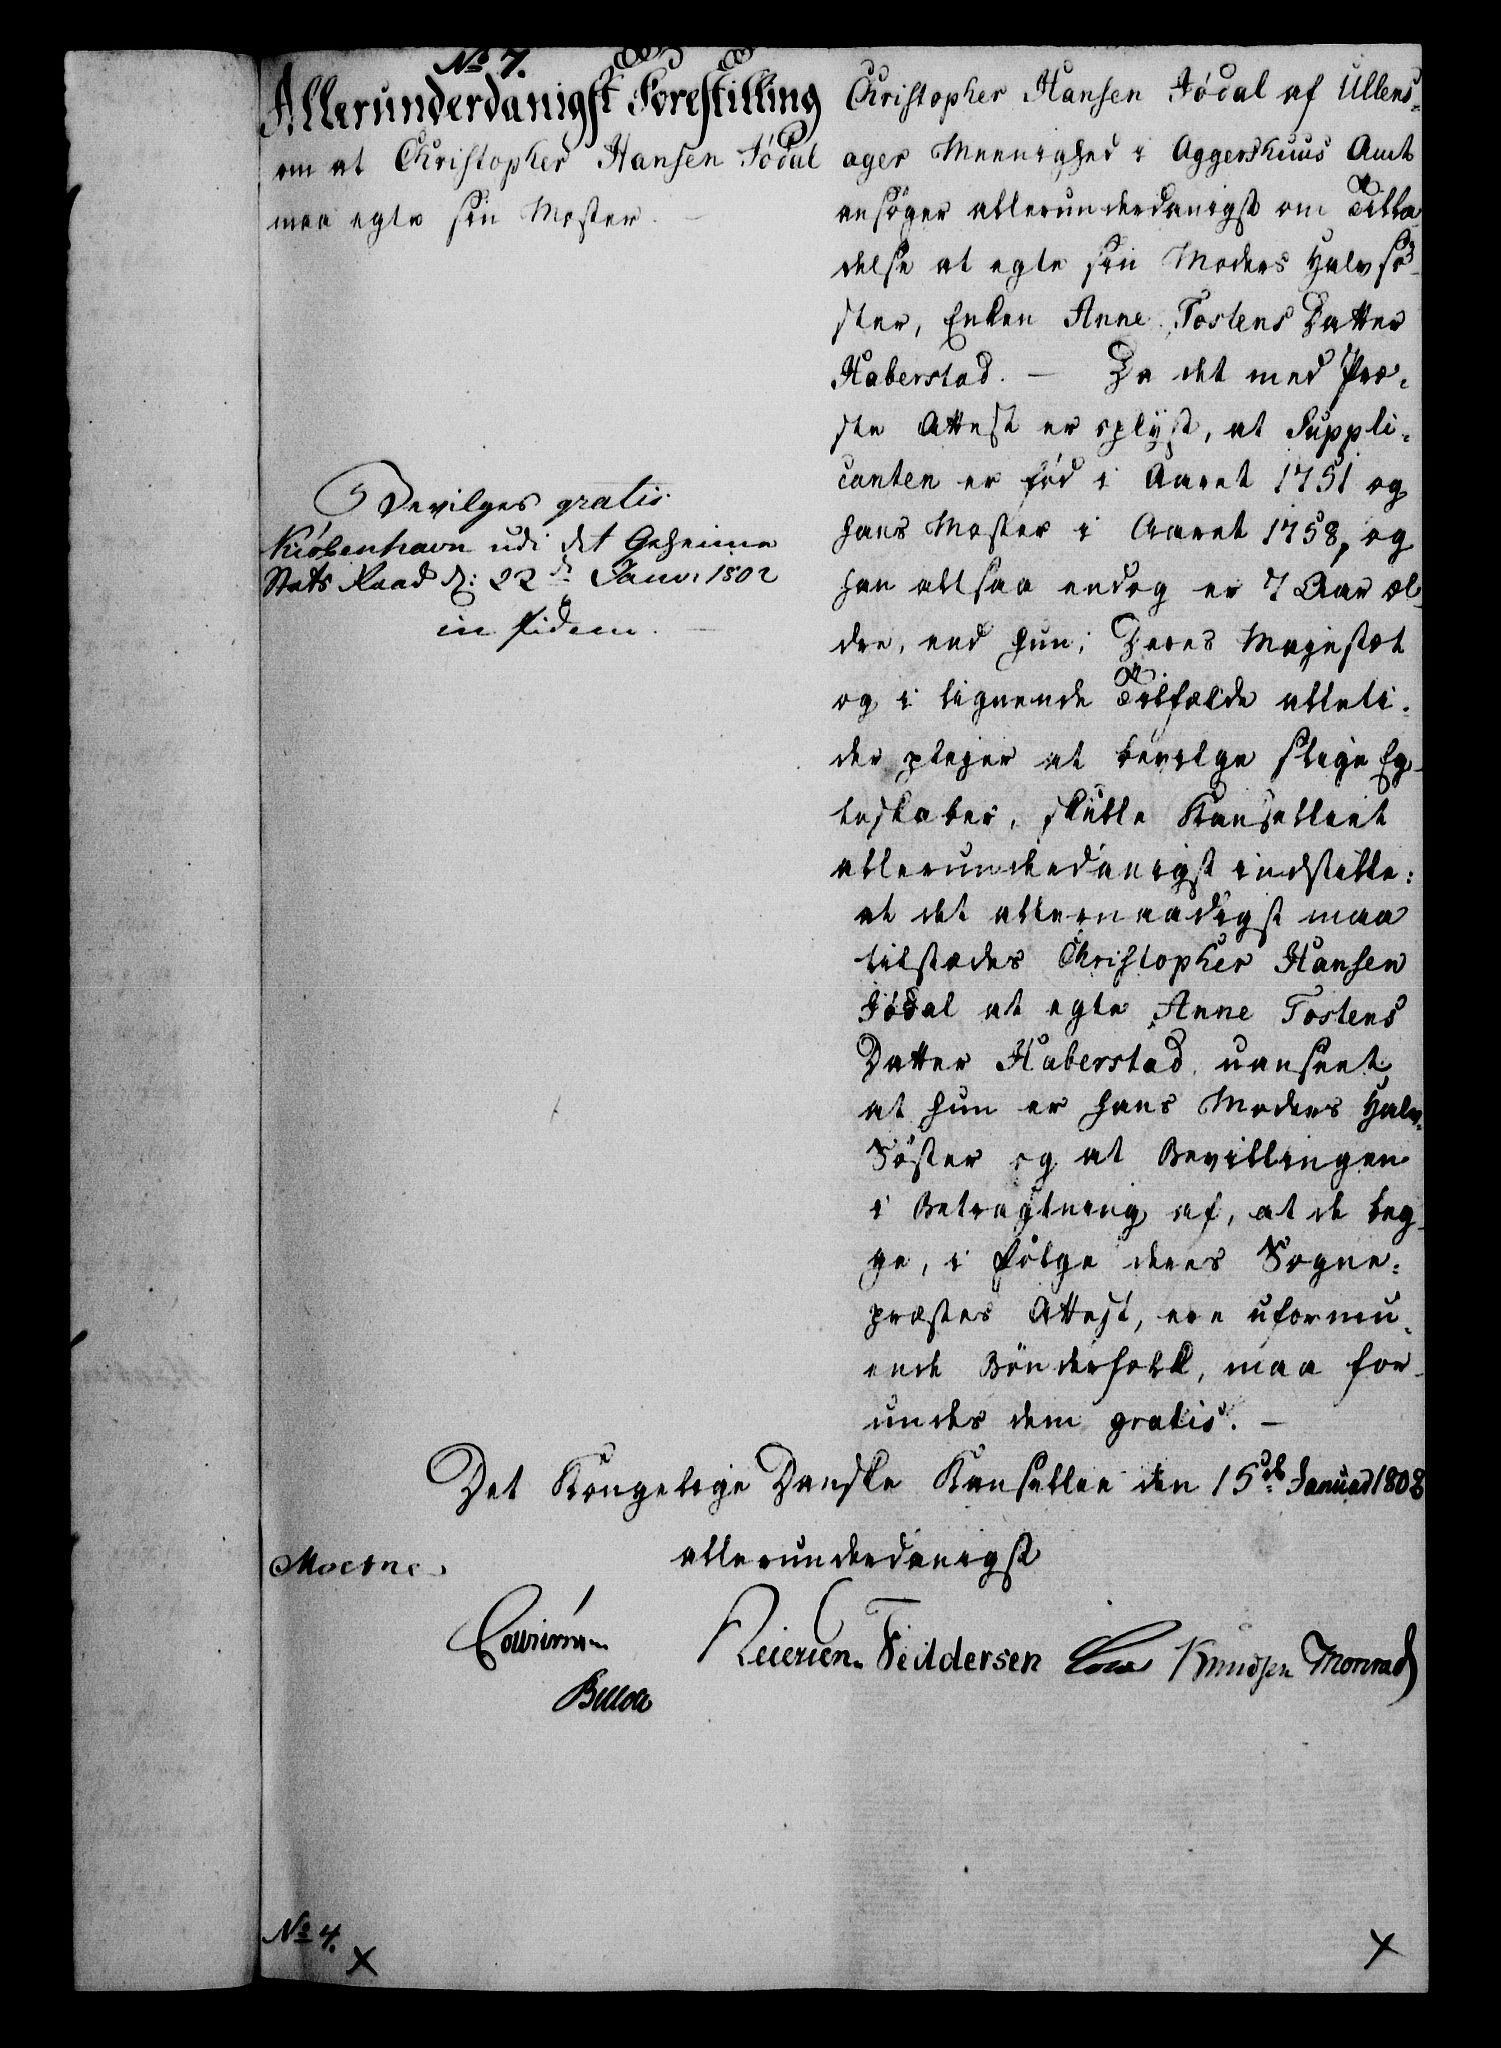 No 7.
Allerunderdanigst Forestilling
om at Christopher Hansen Jödal
maa egte sin Moster. —
Bevilges gratis.
Kiøbenhavn udi det Geheime
Stats Raad d: 22de Janv: 1802
in fidem. —
Christopher Hansen Jödal af Ullens-
ager Meenighed i Aggershuus Amt
ansöger allerunderdanigst om Tilla-
delse at egte sin Moders Halvsö-
ster, Enken Anne Tostens Datter
Haberstad. — Da det med Præ-
ste Attest er oplyst, at Suppli-
canten er fød i Aaret 1751 og
hans Moster i Aaret 1758, og
han altsaa endog er 7 Aar æl-
dre, end hun; Deres Majestæt
og i lignende Tilfælde alleti-
der plejer at bevilge slige Eg-
teskaber, skulle Kanselliet
allerunderdanigst indstille:
at det allernaadigst maa
tilstædes Christopher Hansen
Jödal at egte Anne Tostens
Datter Haberstad uanseet
at hun er hans Moders Halv-
Söster og at Bevillingen
i Betragtning af, at de beg-
ge, i fölge deres Sogne-
præstes Attest, ere uformu-
ende Bönderfolk, maa for-
undes dem gratis. —
Det Kongelige Danske Kansellie den 15de Januar 1802
allerunderdanigst
Moesne
Reiersen. Feddersen Knudsen Monrad
Bülow
No 4.
X X